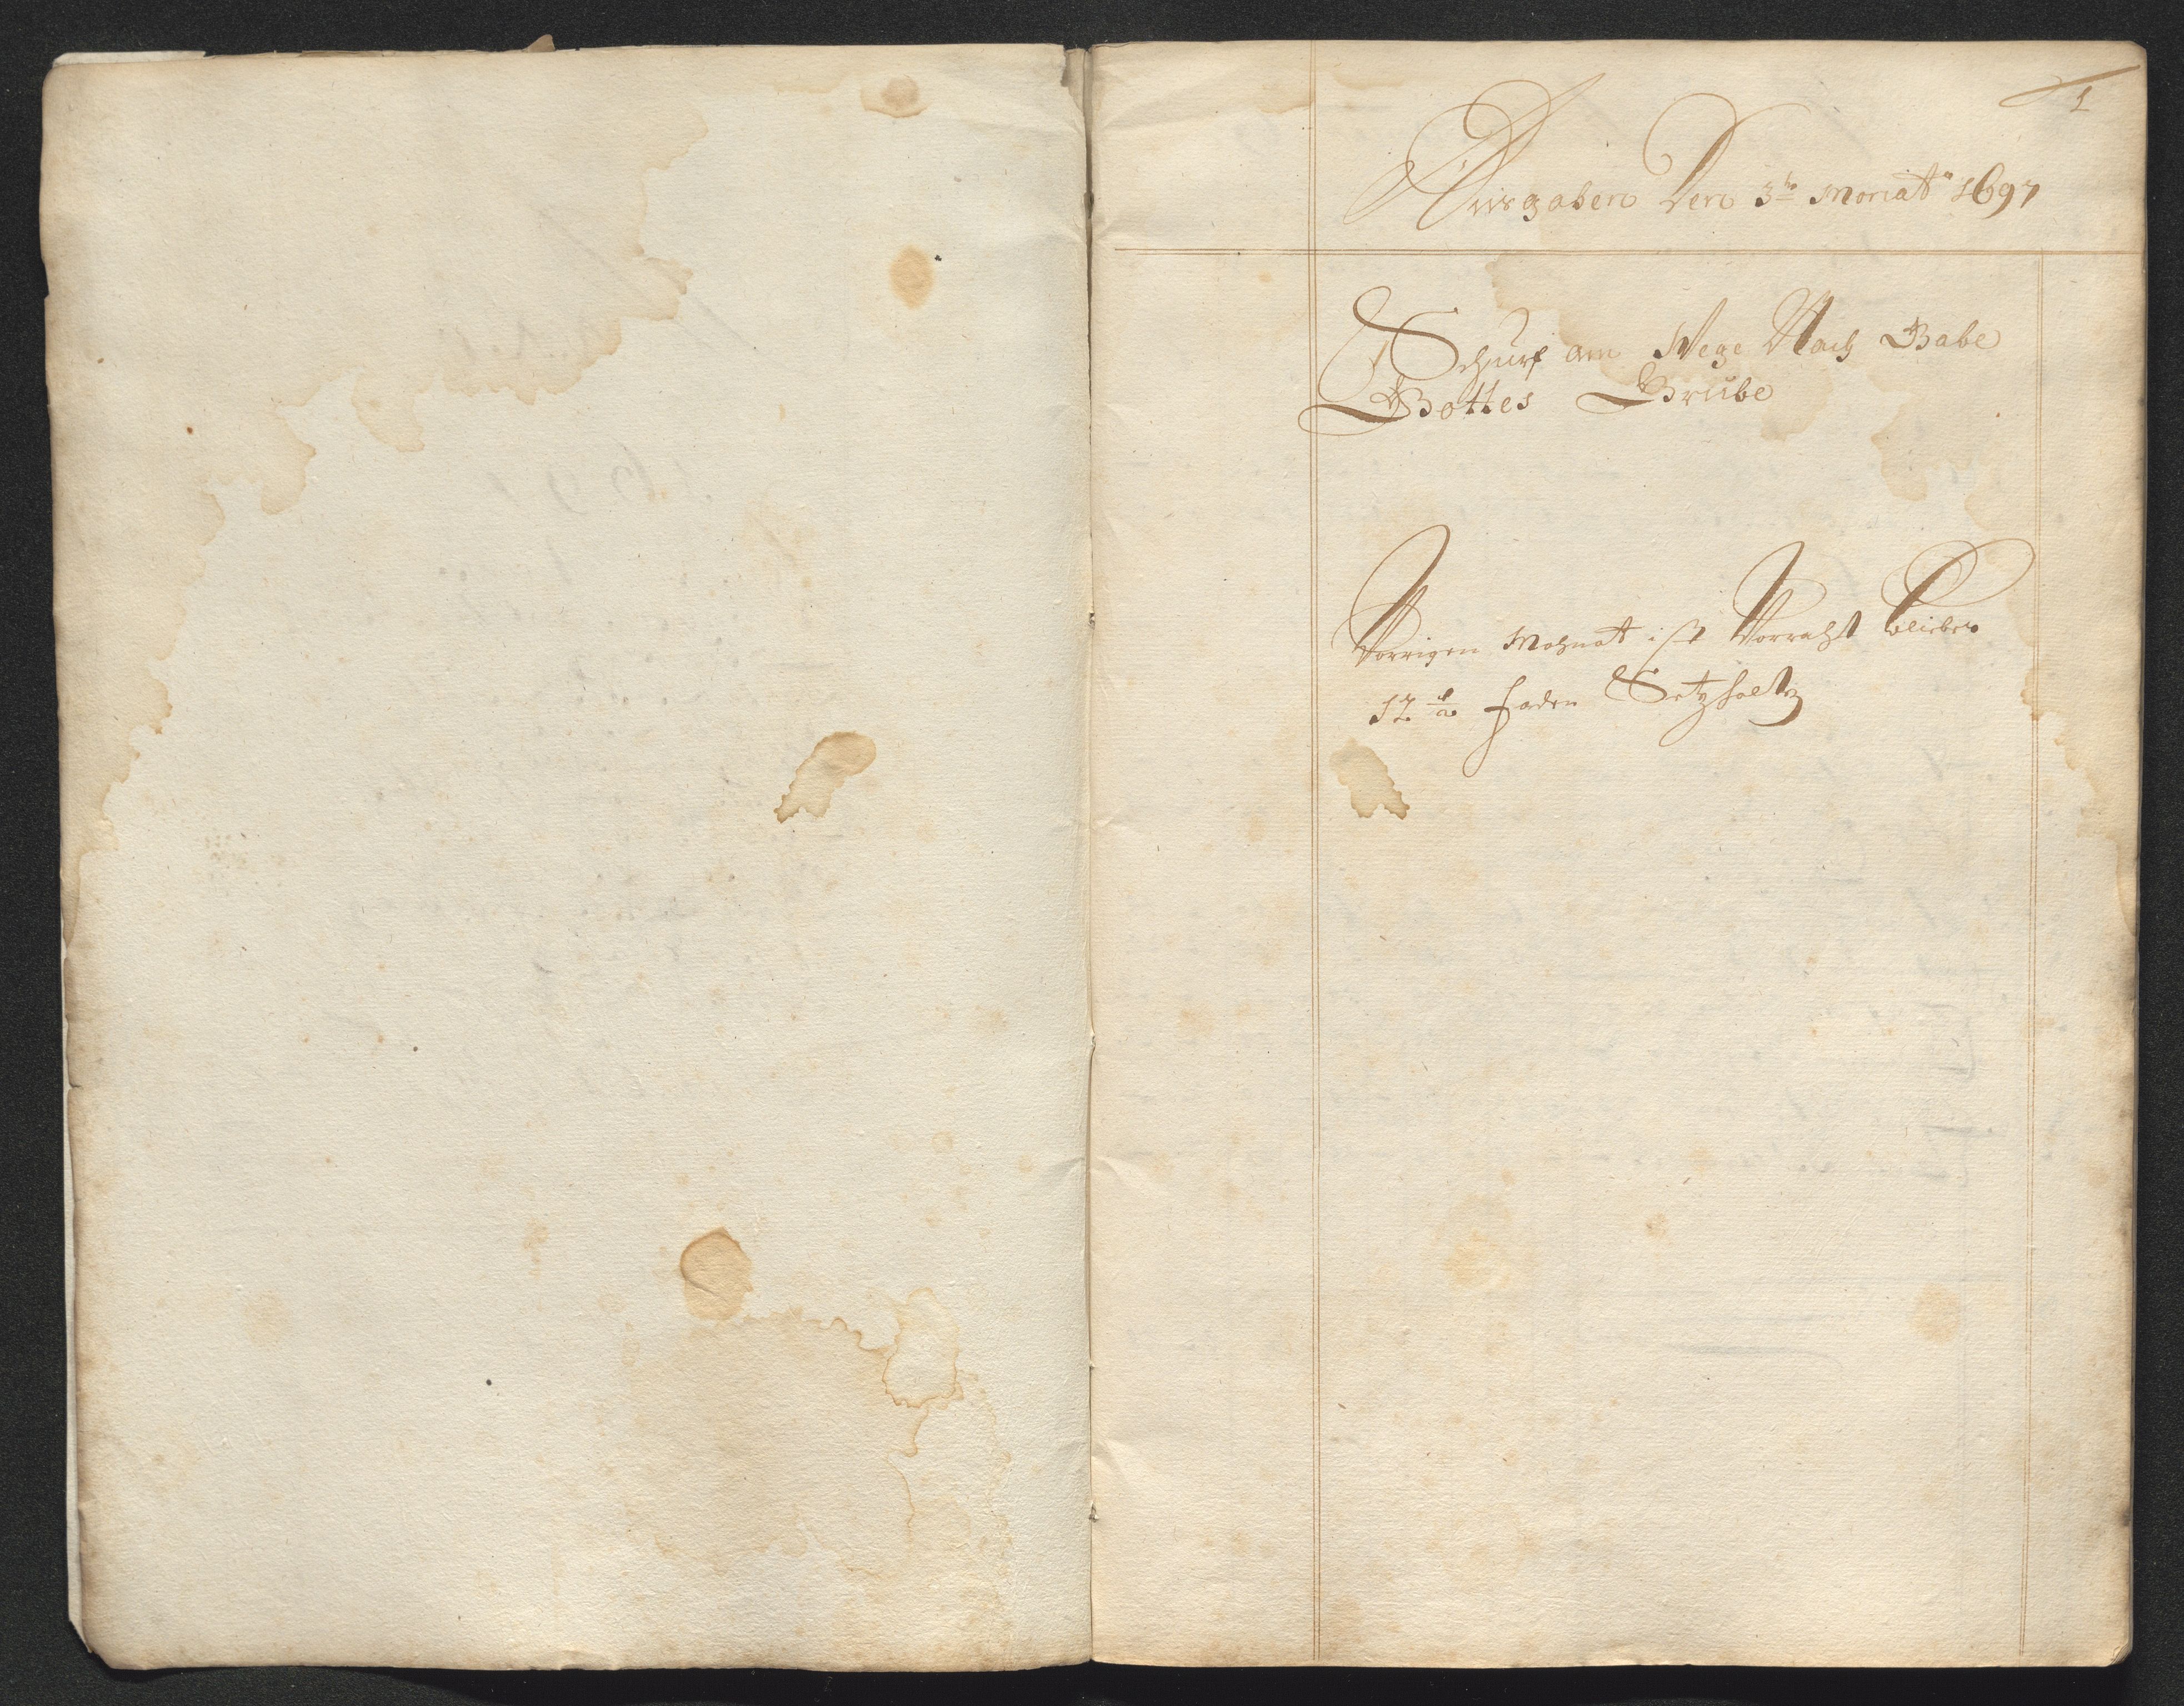 1
Ausgaben Den 3te Monat 1697
Schurf am Wege Nach Gabe
Gottes Grube
Vorrigen Mohnat ist Vorraht blieben
12 ½ faden Setzholtz